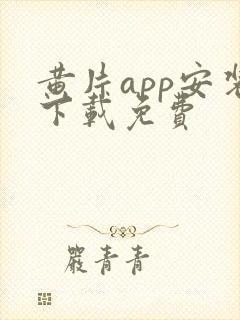 黄片app安装
下載免費
嚴青青